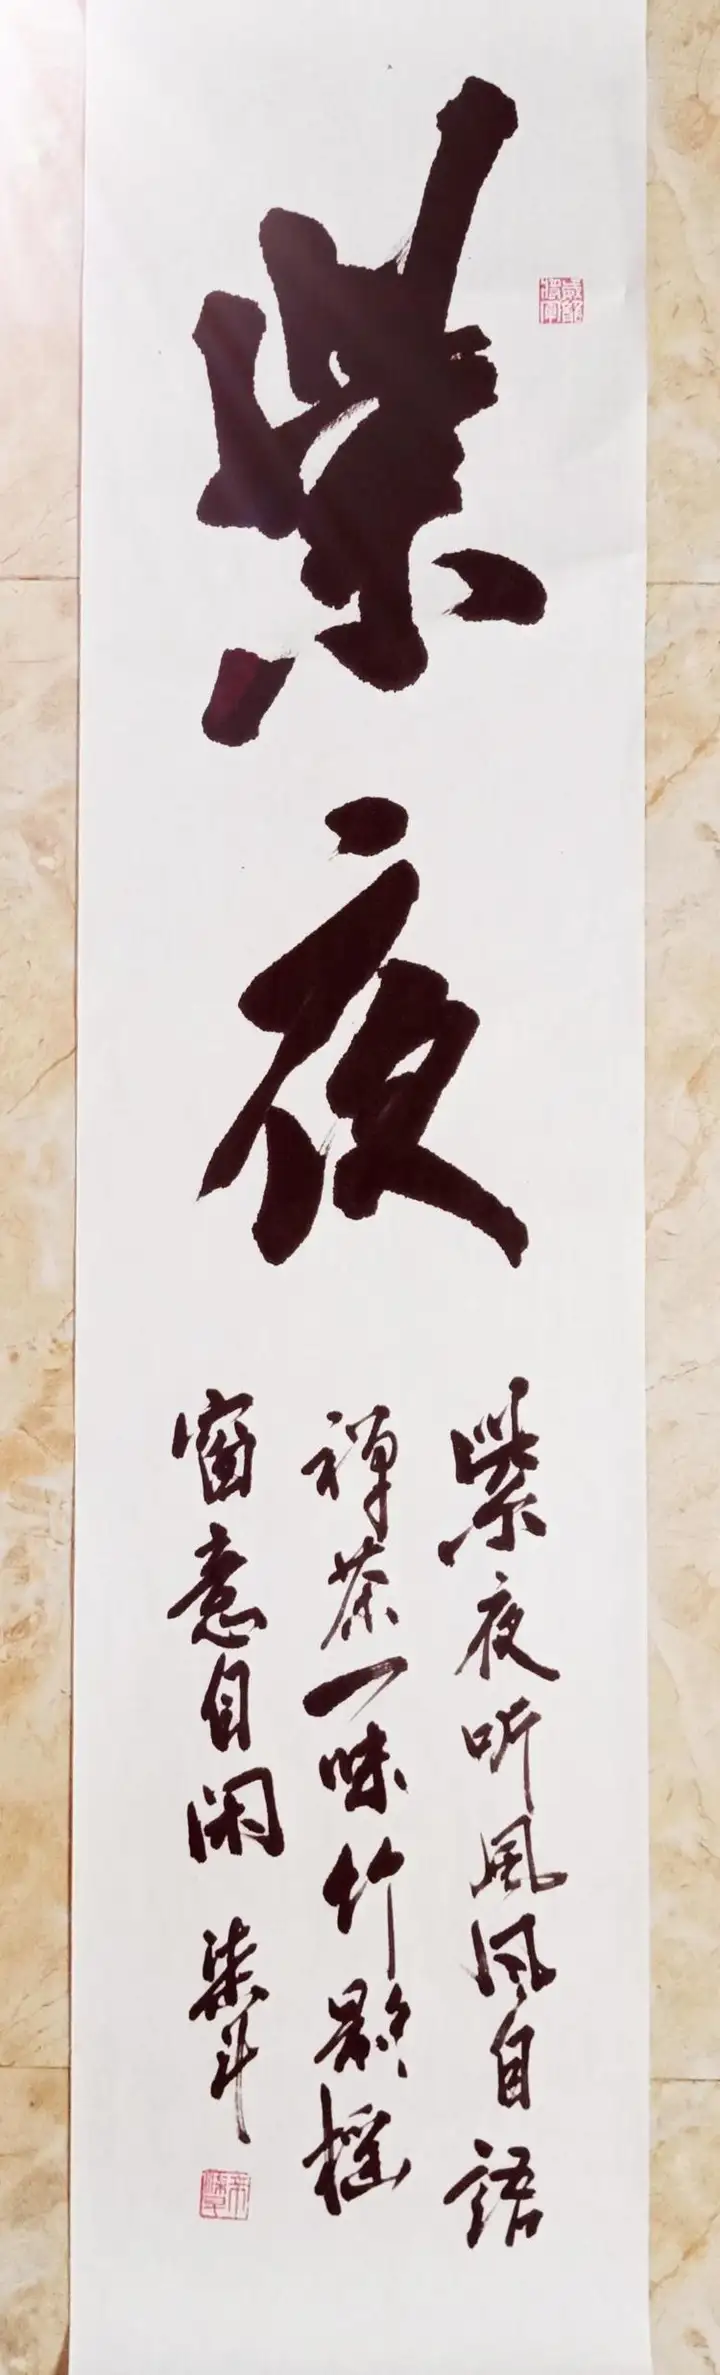 紫夜
紫夜听風风自語
禅茶一味竹影摇
窗意自闲 柒斗